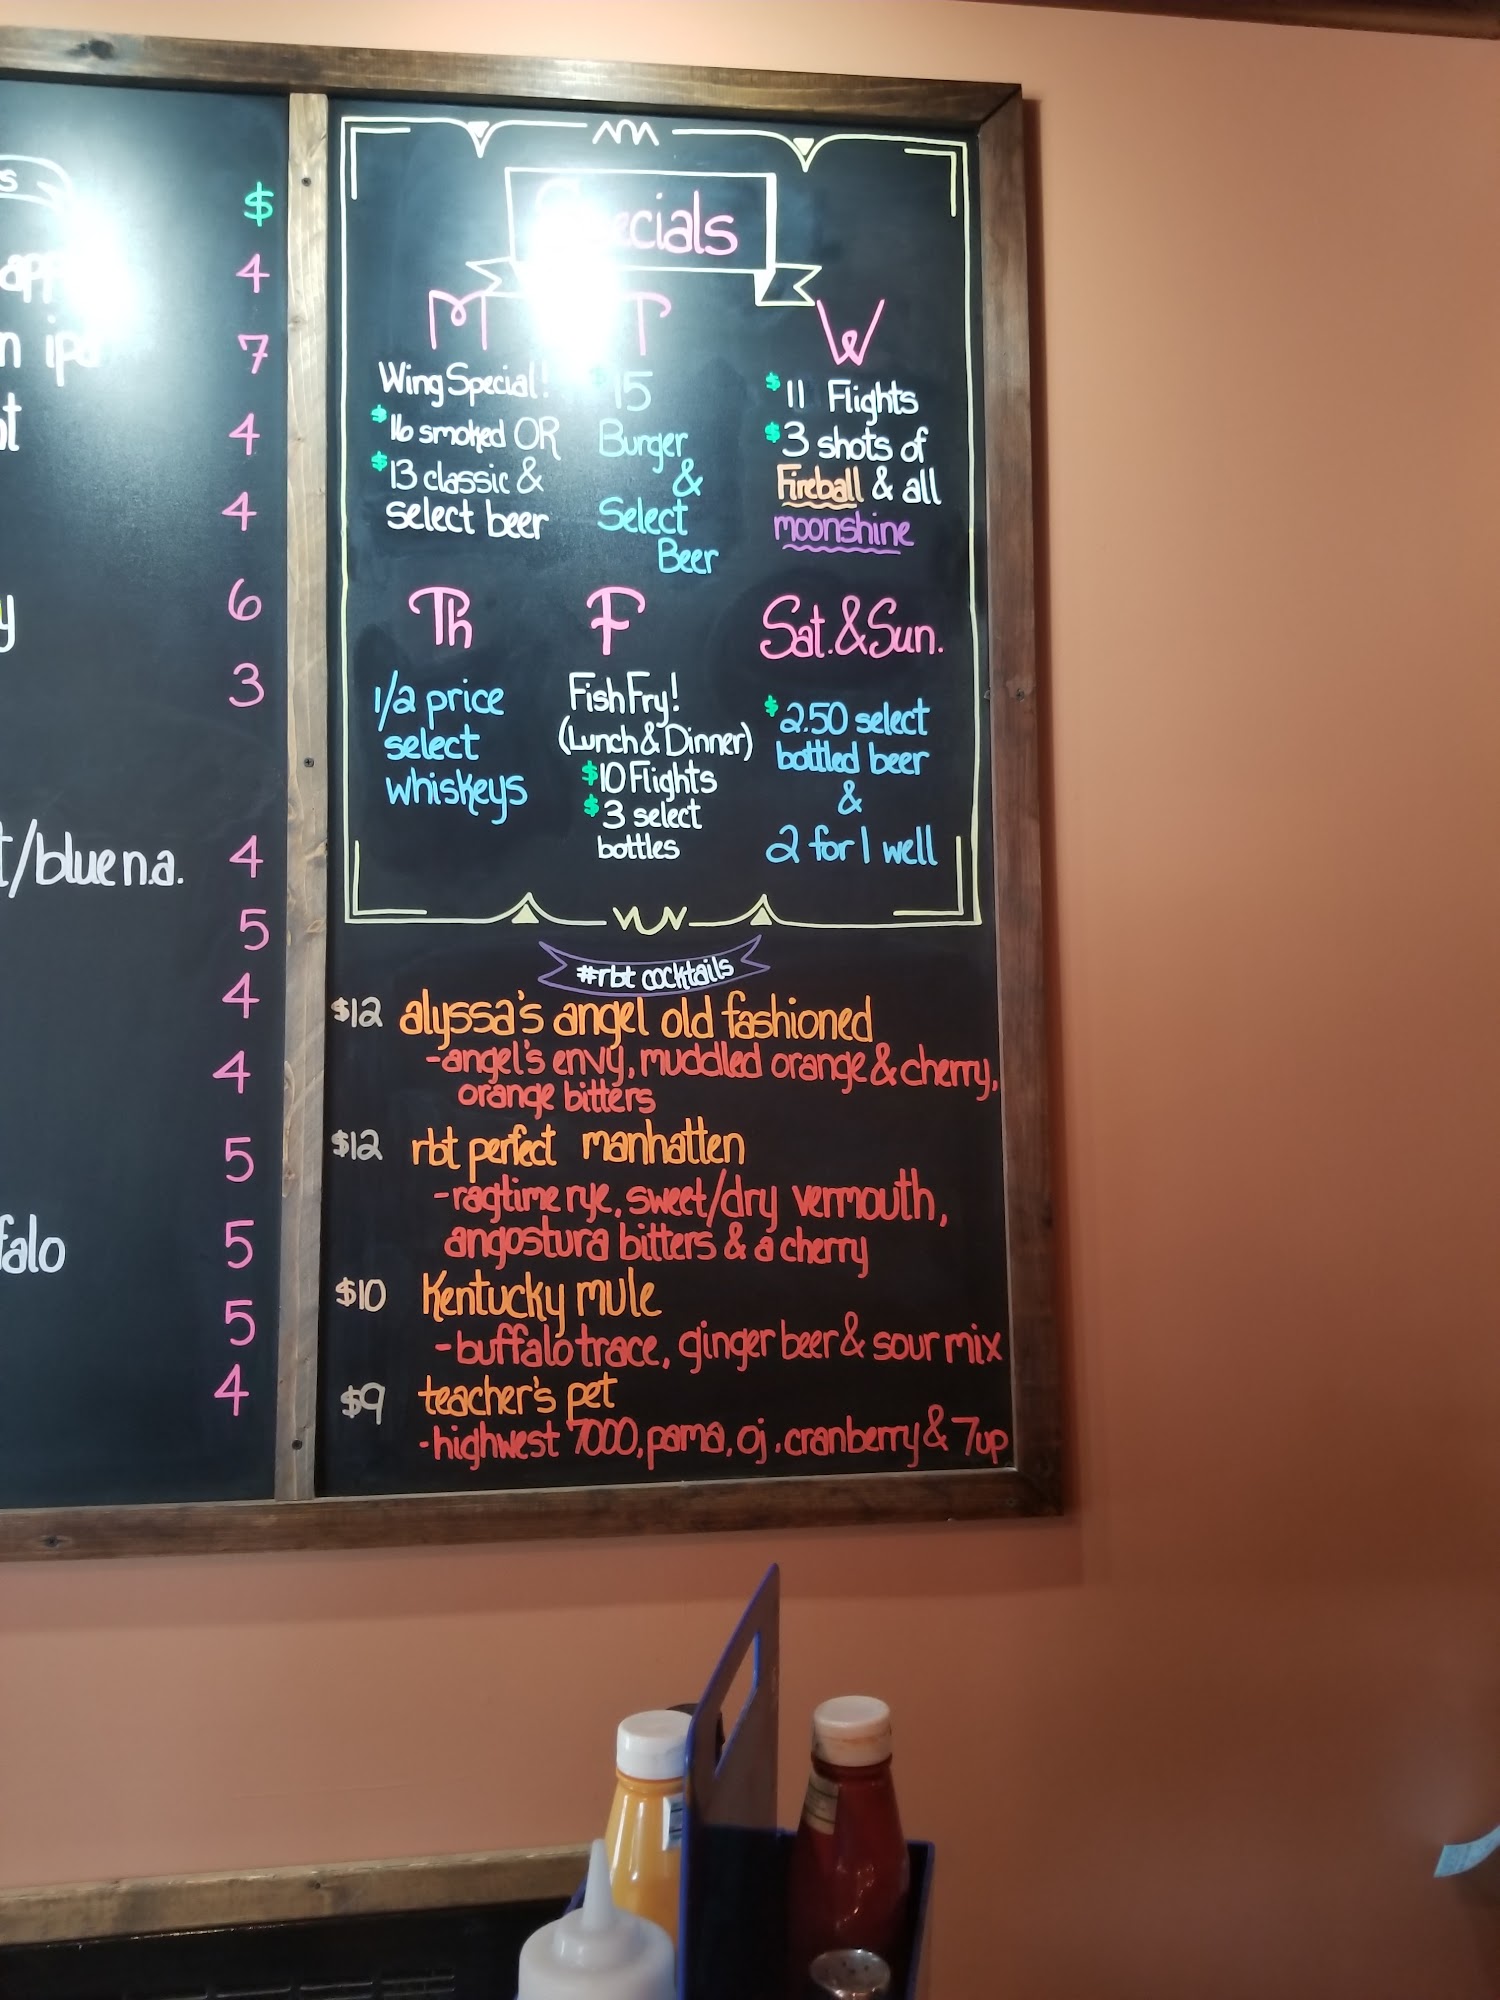 s
$
app
4
n ipa
7
4
4
y
6
3
t/blue n.a.
4
5
4
4
5
falo
5
5
4
Specials
M
Wing Special!
$16 smoked OR
$13 classic &
select beer
T
$15
Burger
&
Select
Beer
W
$11 Flights
$3 shots of
Fireball & all
moonshine
Th
1/2 price
select
whiskeys
F
Fish Fry!
(Lunch & Dinner)
$10 Flights
$3 select
bottles
Sat. & Sun.
$2.50 select
bottled beer
&
2 for 1 well
#rbt cocktails
$12 alyssa's angel old fashioned
-angel's envy, muddled orange & cherry,
orange bitters
$12 rbt perfect manhatten
-ragtime rye, sweet/dry vermouth,
angostura bitters & a cherry
$10 Kentucky mule
-buffalo trace, ginger beer & sour mix
$9 teacher's pet
-highwest 7000, pama, oj, cranberry & 7up